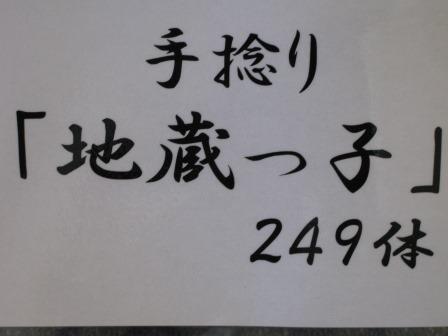 手捻り
「地蔵っ子」
249体